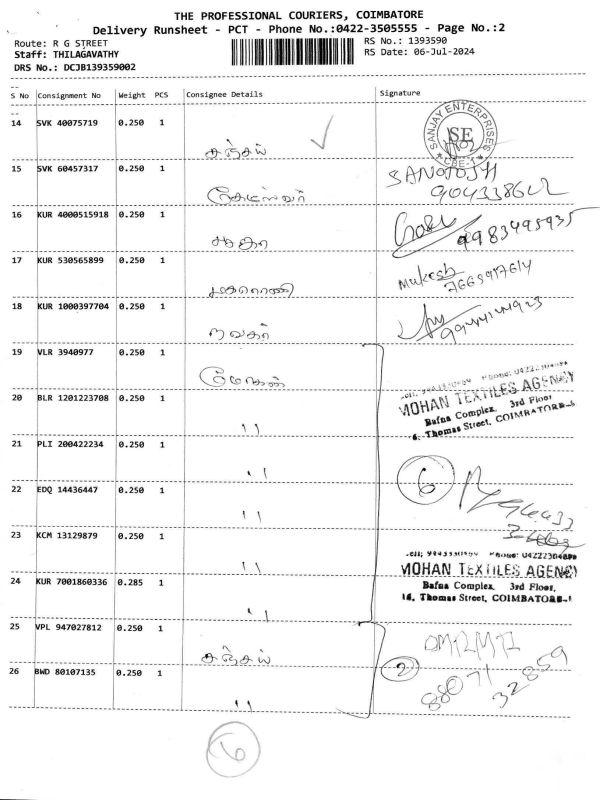 THE PROFESSIONAL COURIERS, COIMBATORE
Delivery Runsheet - PCT - Phone No.:0422-3505555 - Page No.:2
Route: R G STREET
RS No.: 1393590
Staff: THILAGAVATHY
RS Date: 06-Jul-2024
DRS No.: DCJB139359002
--
S No Consignment No Weight PCS Consignee Details Signature
--
14 SVK 40075719 0.250 1
சஞ்சய்
SANJAY ENTERPRISES
SE
CBE-1
15 SVK 60457317 0.250 1
SANTOSH
16 KUR 4000515918 0.250 1
9983495935
17 KUR 530565899 0.250 1
Mukesh
7665917614
18 KUR 1000397704 0.250 1
19 VLR 3940977 0.250 1
மோகன்
20 BLR 1201223708 0.250 1
MOHAN TEXTILES AGENCY
Bafna Complex, 3rd Floor,
Thomas Street, COIMBATORE-1
" 
21 PLI 200422234 0.250 1
"
6
22 EDQ 14436447 0.250 1
"
23 KCM 13129879 0.250 1
"
MOHAN TEXTILES AGENCY
24 KUR 7001860336 0.285 1
Bafna Complex, 3rd Floor,
16, Thomas Street, COIMBATORE-1
"
25 VPL 947027812 0.250 1
சஞ்சய்
2
88071
32859
26 BWD 80107135 0.250 1
"
6